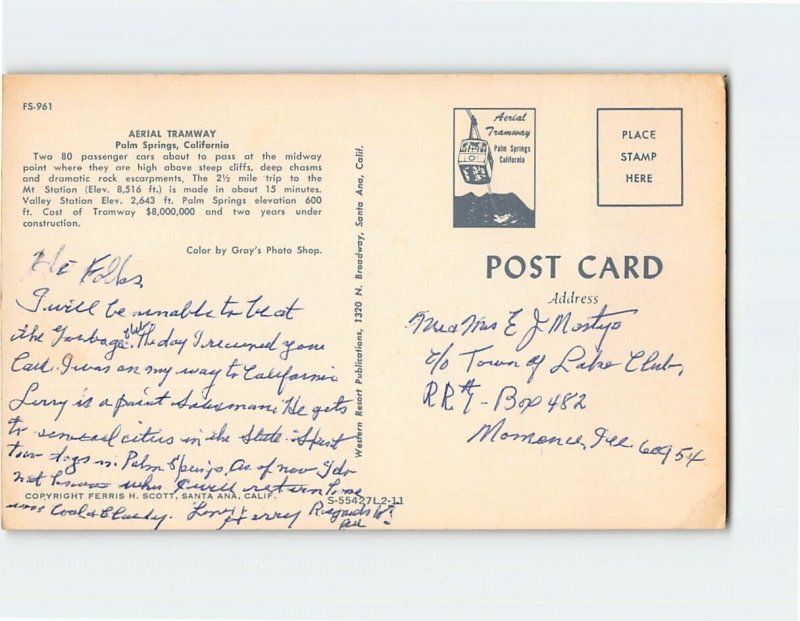 FS-961
AERIAL TRAMWAY
Palm Springs, California
Two 80 passenger cars about to pass at the midway
point where they are high above steep cliffs, deep chasms
and dramatic rock escarpments. The 2½ mile trip to the
Mt Station (Elev. 8,516 ft.) is made in about 15 minutes.
Valley Station Elev. 2,643 ft. Palm Springs elevation 600
ft. Cost of Tramway $8,000,000 and two years under
construction.
Color by Gray's Photo Shop.
Hi Folks
I will be unable to be at
the Garbage The day I received your
Card. I was on my way to California
Lerry is a paint salesman. He gets
to several cities in the State. Spent
two days in Palm Springs. As of now I do
not know when I will return home
Cool & Cloudy. Regards to
COPYRIGHT FERRIS H. SCOTT, SANTA ANA, CALIF.
S-55427L2-11
Western Resort Publications, 1320 N. Broadway, Santa Ana, Calif.
Aerial
Tramway
Palm Springs
California
PLACE
STAMP
HERE
POST CARD
Address
Mr & Mrs E J
c/o Town of Lake Club,
RR #1 - Box 482
Momence, Ill 60954